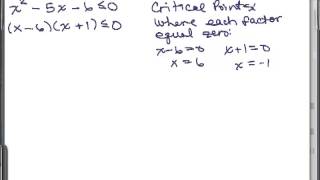 x² - 5x - 6 ≤ 0
(x - 6)(x + 1) ≤ 0
Critical Points
Where each factor
equal zero:
x - 6 = 0 x + 1 = 0
x = 6 x = -1